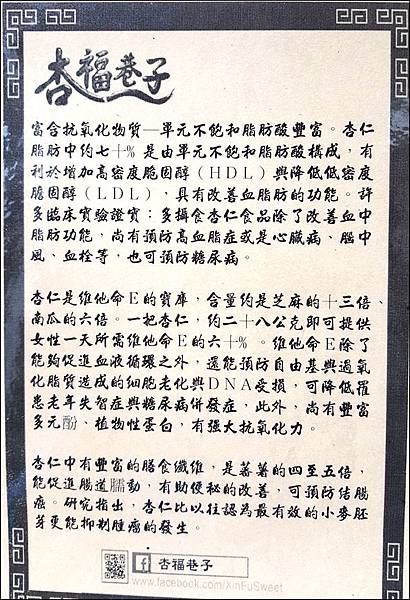 杏福巷子
富含抗氧化物質—單元不飽和脂肪酸豐富。杏仁
脂肪中約七十% 是由單元不飽和脂肪酸構成，有
利於增加高密度脂固醇（HDL）與降低低密度
膽固醇（LDL），具有改善血脂肪的功能。許
多臨床實驗證實：多攝食杏仁食品除了改善血中
脂肪功能，尚有預防高血脂症或是心臟病、腦中
風、血栓等，也可預防糖尿病。
杏仁是維他命E的寶庫，含量約是芝麻的十三倍、
南瓜的六倍。一把杏仁，約二十八公克即可提供
女性一天所需維他命E的六十% 。維他命E除了
能夠促進血液循環之外，還能預防自由基與過氧
化脂質造成的細胞老化與DNA受損，可降低罹
患老年失智症與糖尿病併發症。此外，尚有豐富
多元酚、植物性蛋白，有強大抗氧化力。
杏仁中有豐富的膳食纖維，是蕃薯的四至五倍，
能促進腸道蠕動，有助便秘的改善，可預防結腸
癌。研究指出，杏仁比以往認為最有效的小麥胚
芽更能抑制腫瘤的發生。
f 杏福巷子
www.facebook.com/XinFuSweet